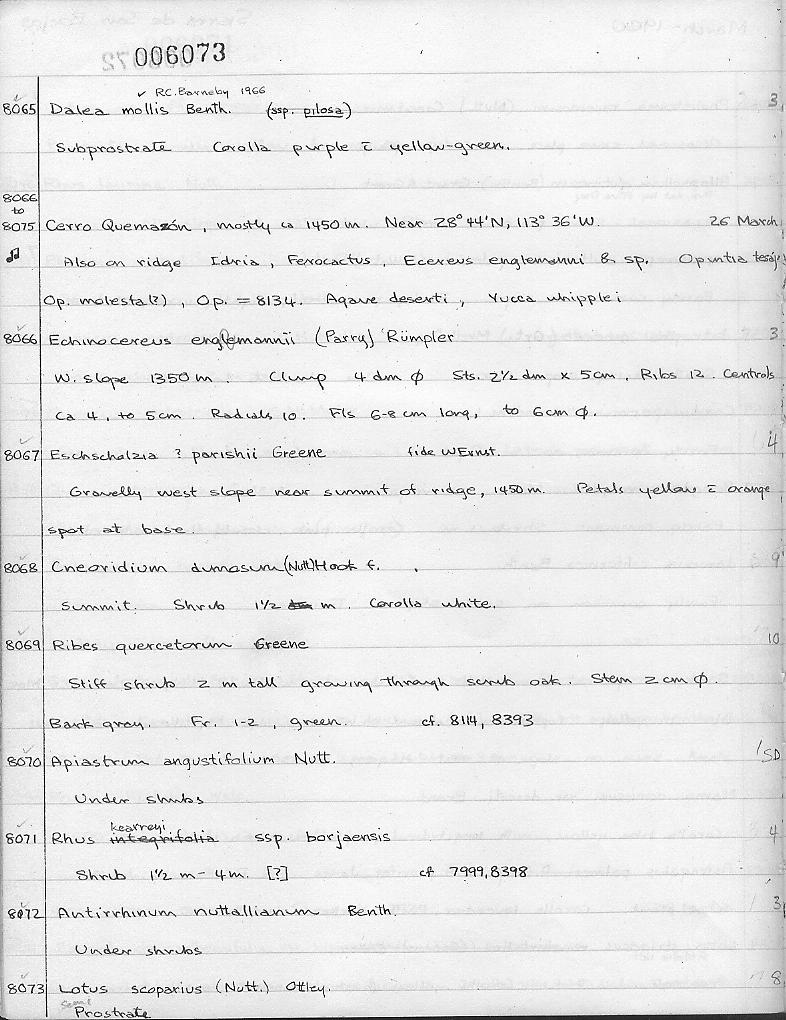 006073
✓ RC. Barneby 1966
8065 Dalea mollis Benth. (ssp. pilosa) 3
Subprostrate Corolla purple c̄ yellow-green.
8066
to
8075 Cerro Quemazón, mostly ca 1450 m. Near 28° 44'N, 113° 36'W. 26 March
♫ Also on ridge Idria, Ferocactus, Ecereus englemanni & sp. Opuntia
Op. molesta(?), Op. = 8134. Agave deserti, Yucca whipplei
8066 Echinocereus englemannii (Parry) Rümpler 3
W. slope 1350 m. Clump 4 dm φ Sts. 2½ dm x 5 cm. Ribs 12. Centrals
ca 4, to 5 cm. Radials 10. Fls 6-8 cm long, to 6 cm φ.
8067 Eschscholzia ? parishii Greene fide WErnst. 4
Gravelly west slope near summit of ridge, 1450 m. Petals yellow c̄ orange
spot at base.
8068 Cneoridium dumosum (Nutt) Hook f. 9
Summit. Shrub 1½ m. Corolla white.
8069 Ribes quercetorum Greene 10
Stiff shrub 2 m tall growing through scrub oak. Stem 2 cm φ.
Bark gray. Fr. 1-2, green. cf. 8114, 8393
8070 Apiastrum angustifolium Nutt. 1SD
Under shrubs
kearneyi
8071 Rhus integrifolia ssp. borjaensis 4
Shrub 1½ m - 4 m. [?] cf 7999, 8398
8072 Antirrhinum nuttallianum Benth. 3
Under shrubs
8073 Lotus scoparius (Nutt.) Ottley. 8
Semi
Prostrate